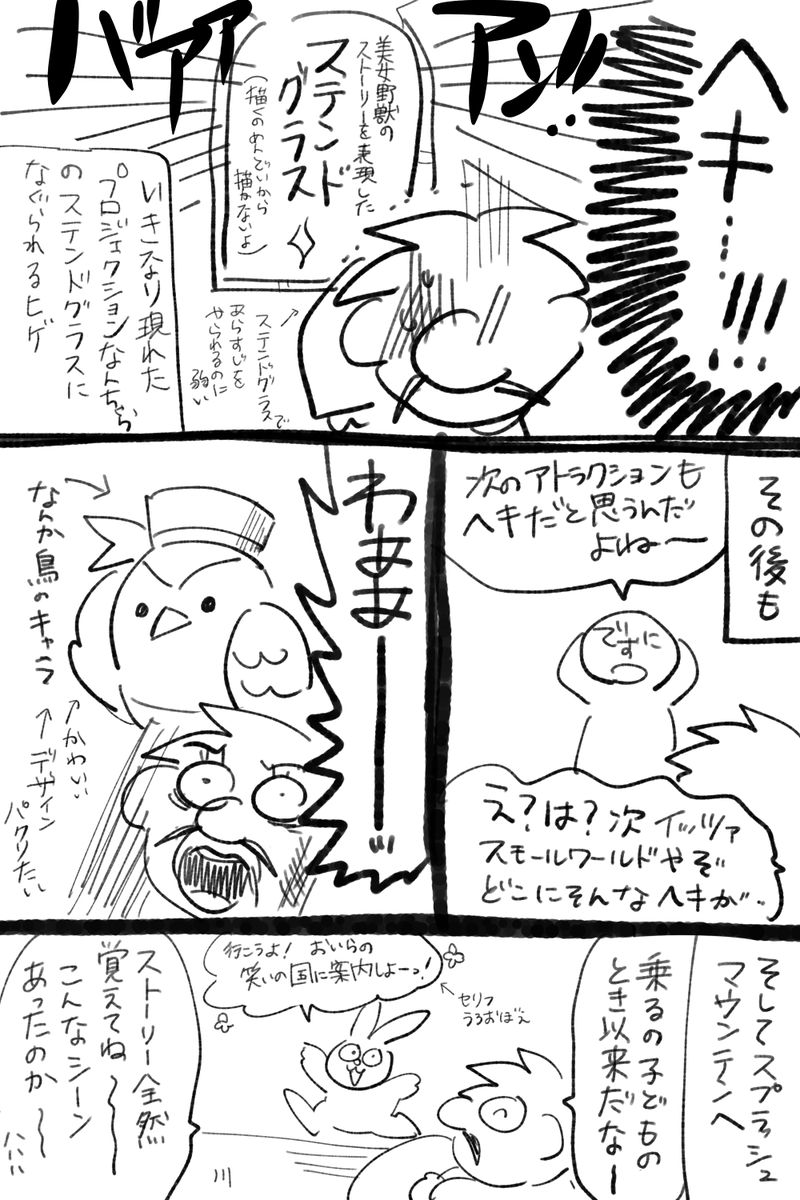 ヘキ…!!!…
バアアアアン‥
美女野獣の
ストーリーを表現した
ステンド
グラス
(描くのめんどいから
描かないよ)
いきなり現れた
プロジェクションなんちゃら
のステンドグラスに
なぐられるヒゲ
ステンドグラスで
あらすじを
やられるのに
弱い
その後も
次のアトラクションも
ヘキだと思うんだ
よねー
でずに
え?は?次イッツァ
スモールワールドやぞ
どこにそんなヘキが‥
わああーーー!!!
なんか鳥のキャラ
かわいい
デザイン
パクりたい
そしてスプラッシュ
マウンテンへ
乗るの子どもの
とき以来だなー
行こうよ!おいらの
笑いの国に案内しよーっ!
セリフ
うろおぼえ
ストーリー全然
覚えてね〜〜
こんなシーン
あったのか〜〜
ハハハ